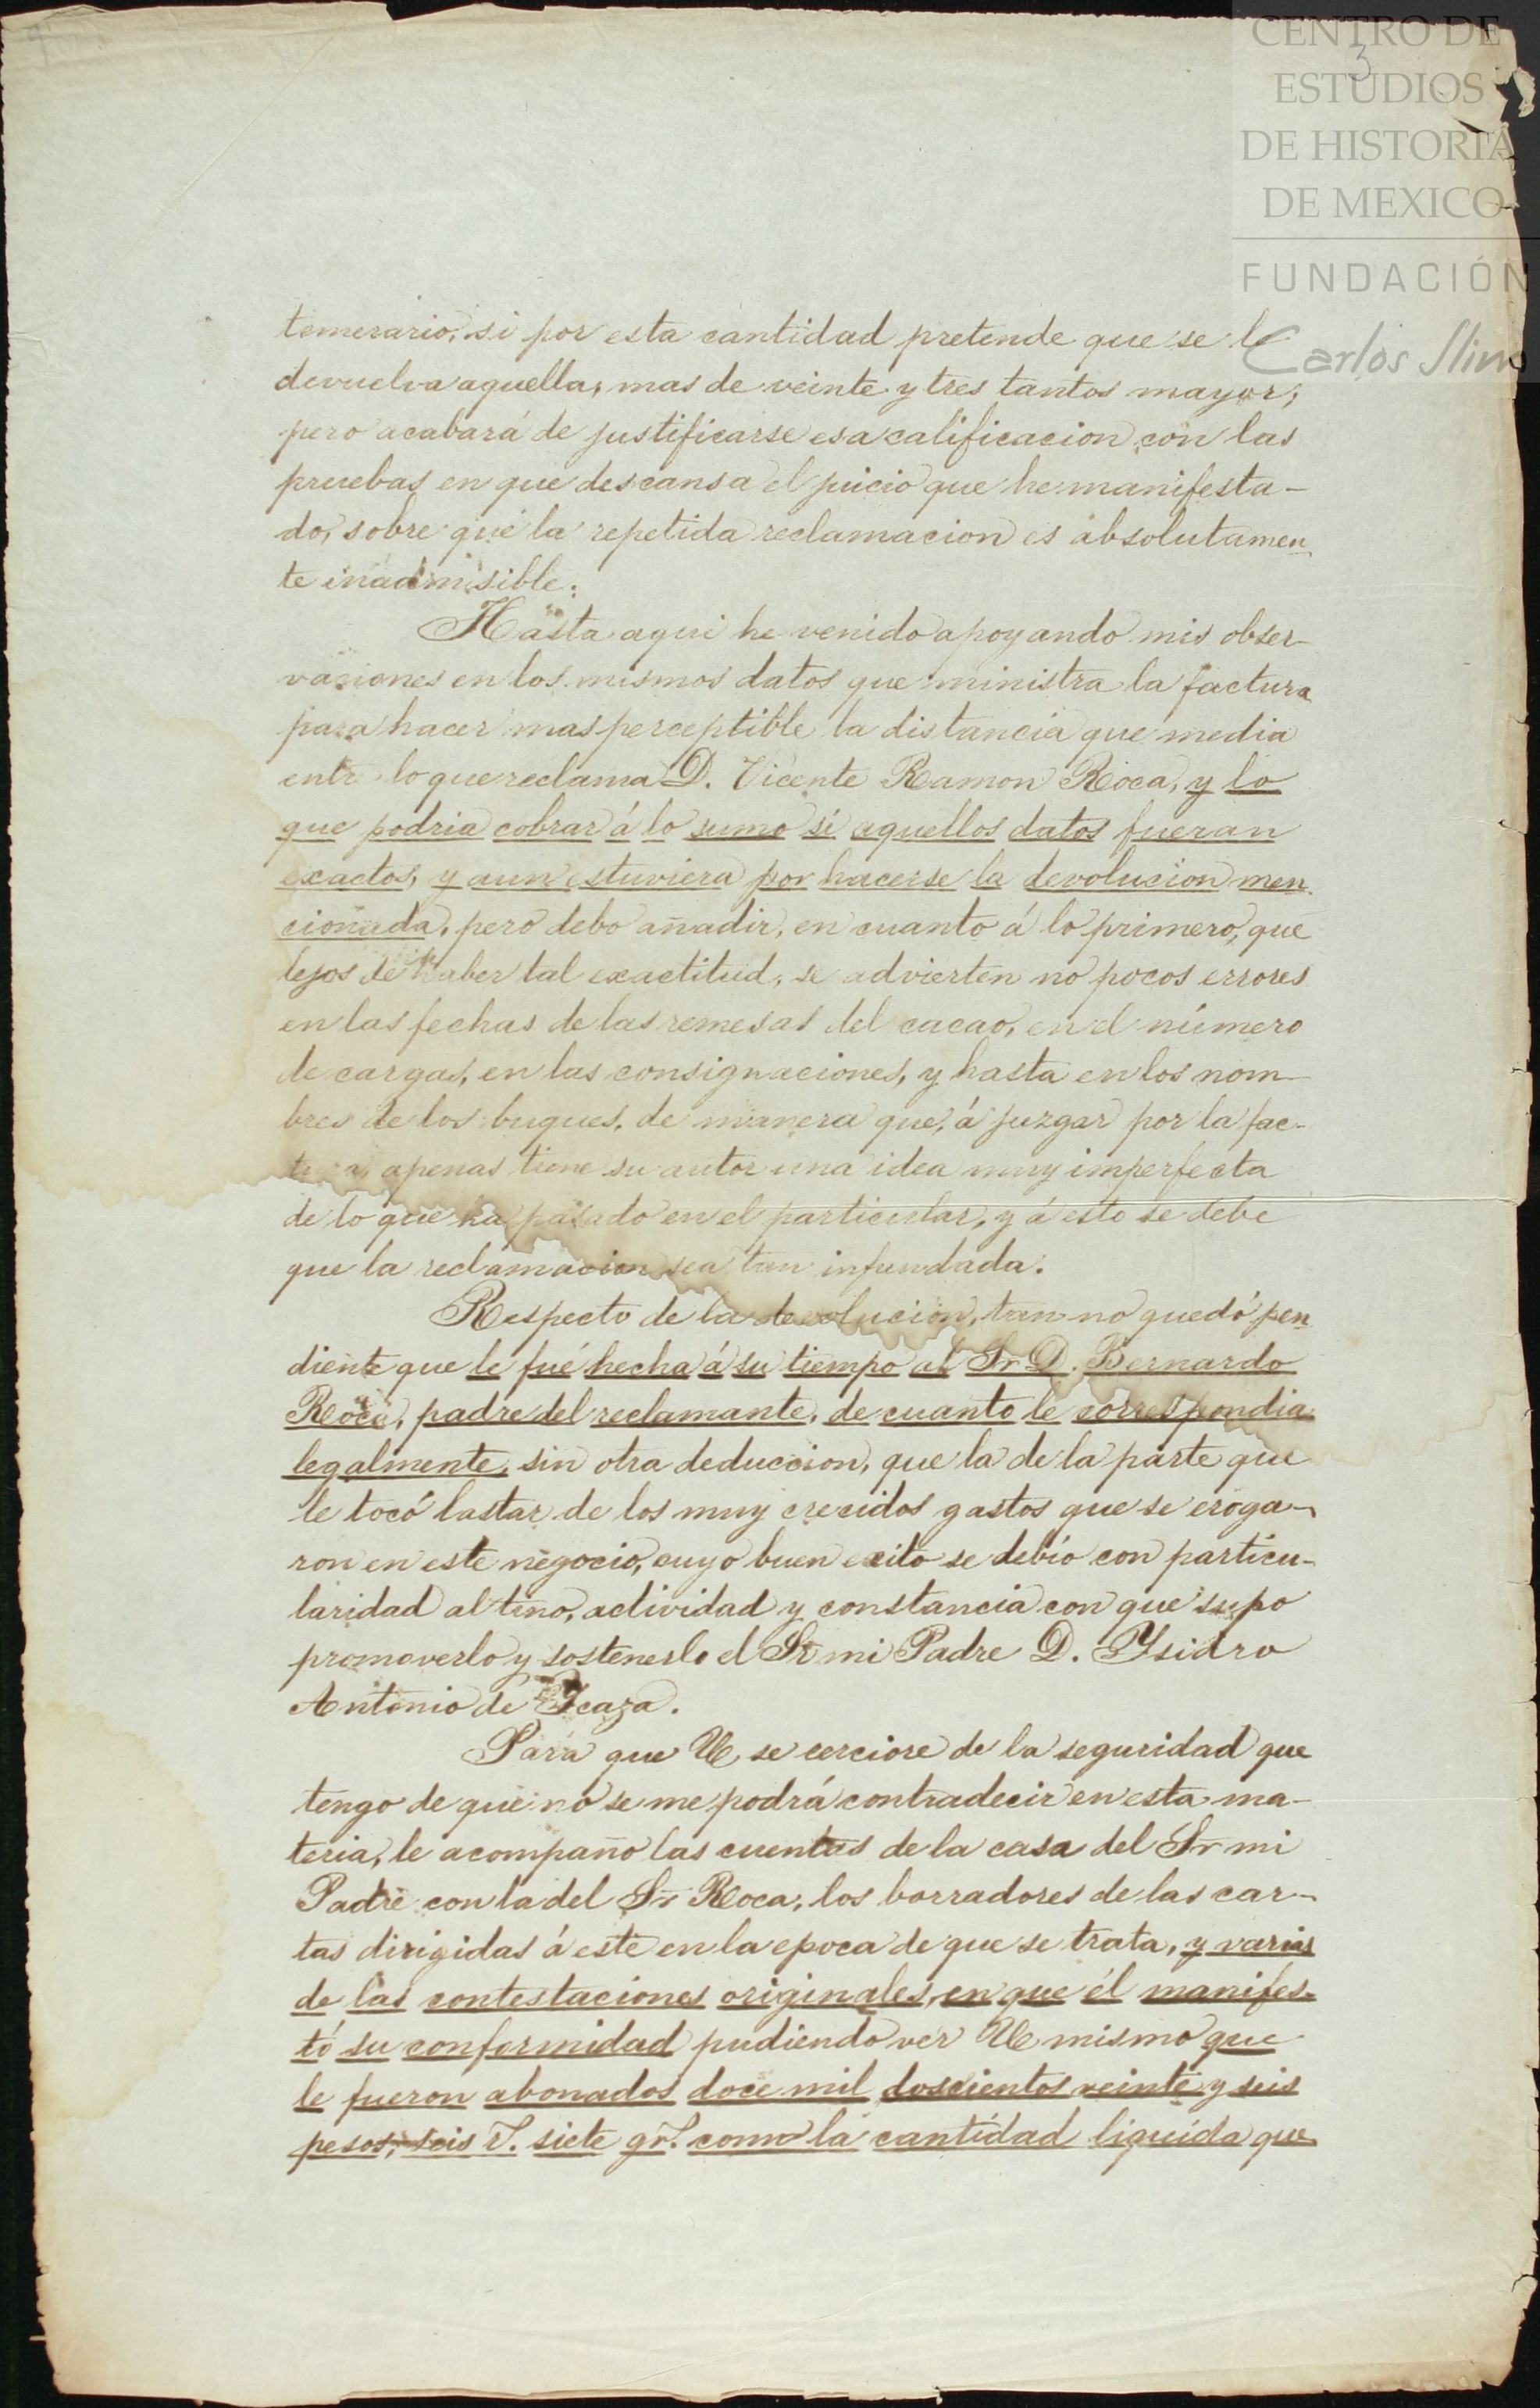 CENTRO DE
3
ESTUDIOS
DE HISTORIA
DE MEXICO
FUNDACIÓN
Carlos Slim
temerario, si por esta cantidad pretende que se le
devuelva aquella, mas de veinte y tres tantos mayor;
pero acabará de justificarse esa calificacion con las
pruebas en que descansa el juicio que he manifesta-
do, sobre que la repetida reclamacion es absolutamen
te inadmisible.
Hasta aqui he venido apoyando mis obser-
vaciones en los mismos datos que ministra la factura
para hacer mas perceptible la distancia que media
entre lo que reclama D. Vicente Ramon Roca, y lo
que podria cobrar á lo sumo si aquellos datos fueran
exactos, y aun estuviera por hacerse la devolucion men
cionada, pero debo añadir, en cuanto á lo primero, que
lejos de haber tal exactitud, se advierten no pocos errores
en las fechas de las remesas del cacao, en el número
de cargas, en las consignaciones, y hasta en los nom-
bres de los buques, de manera que, á juzgar por la fac-
tura, apenas tiene su autor una idea muy imperfecta
de lo que ha pasado en el particular, y á esto se debe
que la reclamacion sea tan infundada.
Respecto de la devolucion, tan no quedó pen
diente que le fué hecha á su tiempo al Sr D. Bernardo
Roca, padre del reclamante, de cuanto le correspondia
legalmente, sin otra deduccion, que la de la parte que
le tocó lastar de los muy crecidos gastos que se eroga-
ron en este negocio, cuyo buen exito se debió con particu-
laridad al tino, actividad y constancia con que supo
promoverlo y sostenerlo el Sr mi Padre D. Ysidro
Antonio de Icaza.
Para que U se cerciore de la seguridad que
tengo de que no se me podrá contradecir en esta ma-
teria, le acompaño las cuentas de la casa del Sr mi
Padre con la del Sr Roca, los borradores de las car-
tas dirigidas á este en la epoca de que se trata, y varias
de las contestaciones originales, en que él manifes-
tó su conformidad pudiendo ver U mismo que
le fueron abonados doce mil doscientos veinte y seis
pesos, seis r.s siete gr.s como la cantidad liquida que